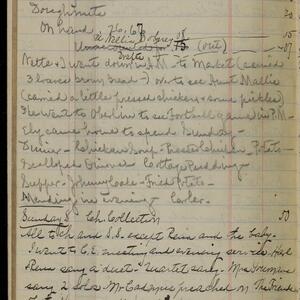 Doughnuts 20
On hand 26.67
15
(out) 07
Nettie & I went down P.M. to Market (carried
3 loaves brown bread -) & to see Aunt Mallie
(carried a little pressed chicken & some pickles)
went to Oberlin to see Football game in P.M.
Ely came home to spend Sunday -
Dinner - Chicken Soup - Roast Chicken - Potato -
Scalloped Onions Cottage Pudding -
Supper - Johnny Cake - Fried Potato -
Mending in evening Cooler.
Sunday 8 Ch. Collection 50
All to Ch and S.S. except Rena and the baby.
I went to C.E. meeting and evening service.
Rena sang a duet - Quartet sang. Mrs
sang 2 solos. Mr. preached on The